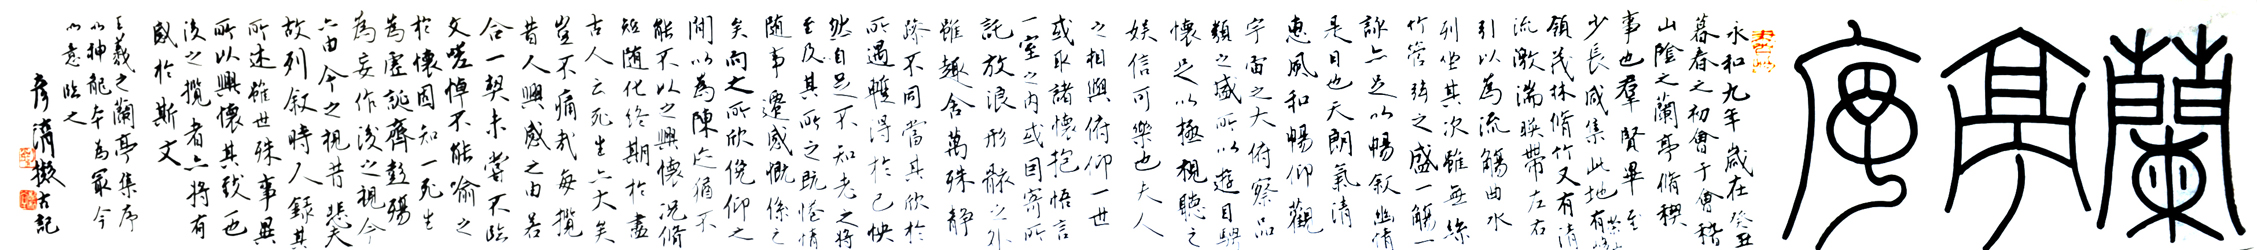 蘭亭序
永和九年歲在癸丑
暮春之初會于會稽
山陰之蘭亭脩稧
事也羣賢畢至
少長咸集此地有崇山峻
領茂林脩竹又有清
流激湍暎帶左右
引以為流觴曲水
列坐其次雖無絲
竹管弦之盛一觴一
詠亦足以暢叙幽情
是日也天朗氣清
惠風和暢仰觀
宇宙之大俯察品
類之盛所以遊目騁
懷足以極視聽之
娛信可樂也夫人
之相與俯仰一世
或取諸懷抱悟言
一室之內或因寄所
託放浪形骸之外
雖趣舍萬殊靜
躁不同當其欣於
所遇蹔得於己快
然自足不知老之將
至及其所之既惓情
隨事遷感慨係之
矣向之所欣俛仰之
間以為陳迹猶不
能不以之興懷況脩
短隨化終期於盡
古人云死生亦大矣
豈不痛哉每攬
昔人興感之由若
合一契未嘗不臨
文嗟悼不能喻之
於懷固知一死生
為虛誕齊彭殤
為妄作後之視今
亦由今之視昔悲夫
故列叙時人錄其
所述雖世殊事異
所以興懷其致一也
後之攬者亦將有
感於斯文
王羲之蘭亭集序
以神龍本為最今
以意臨之
彥清擬古記